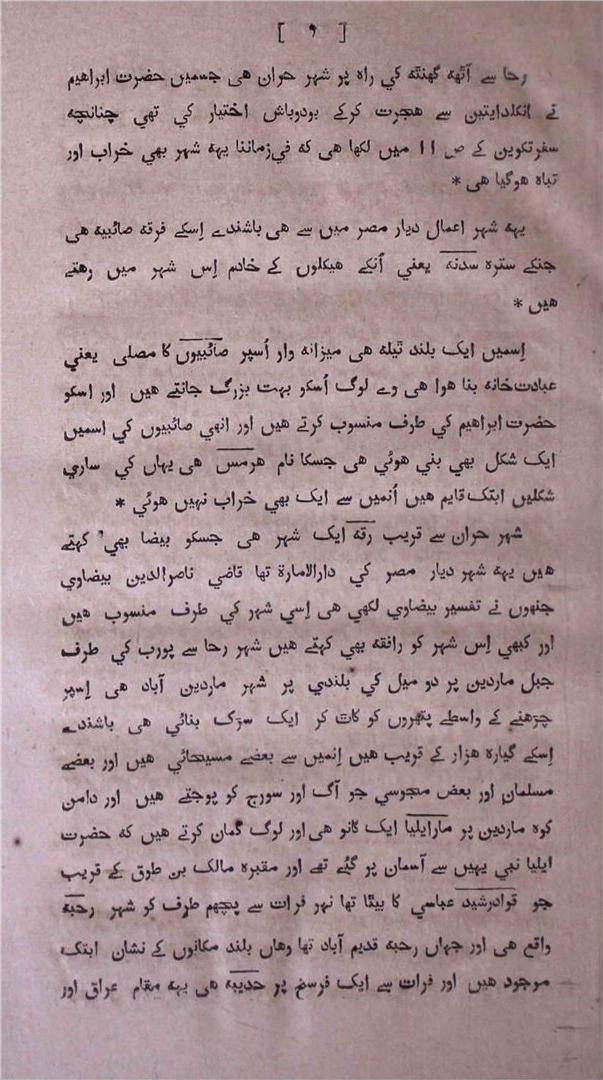 [ ۹ ]
رحا سے آٹھه گھنٹه کي راہ پر شہر حران هی جسمیں حضرت ابراهیم
نے انکلدایتین سے هجرت کرکے بودوباش اختیار کي تھي چنانچه
سفر تکوین کے ص ۱۱ میں لکھا هی که في زماننا یہه شہر بھي خراب اور
تباہ هوگیا هی *
یہه شہر اعمال دیار مصر میں سے هی باشندے اِسکے فرقه صائبیه هی
جنکے سترہ سدنه یعني اُنکے هیکلوں کے خادم اِس شہر میں رهتے
هیں *
اِسمیں ایک بلند ٹیله هی میزانه وار اُسپر صائبیوں کا مصلی یعني
عبادت خانه بنا هوا هی وے لوگ اُسکو بہت بزرگ جانتے هیں اور اسکو
حضرت ابراهیم کي طرف منسوب کرتے هیں اور انھي صائبیوں کي اسمیں
ایک شکل بھي بني هوئي هی جسکا نام هرمس هی یہاں کي ساري
شکلیں ابتک قایم هیں اُنمیں سے ایک بھي خراب نہیں هوئي *
شہر حران سے قریب رقه ایک شہر هی جسکو بیضا بھي کہتے
هیں یہه شہر دیار مصر کي دارالامارة تھا قاضي ناصرالدین بیضاوي
جنھوں نے تفسیر بیضاوي لکھي هی اِسي شہر کي طرف منسوب هیں
اور کبھي اِس شہر کو رافقه بھي کہتے هیں شہر رحا سے پورب کي طرف
جبل ماردین پر دو میل کي بلندي پر شہر ماردین آباد هی اِسپر
چڑهنے کے واسطے پتھروں کو کاٹ کر ایک سڑک بنائي هی باشندے
اِسکے گیارہ هزار کے قریب هیں اِنمیں سے بعضے مسیحائي هیں اور بعضے
مسلمان اور بعض مجوسي جو آگ اور سورج کو پوجتے هیں اور دامن
کوہ ماردین پر مارایلیا ایک گانو هی اور لوگ گمان کرتے هیں که حضرت
ایلیا نبي یہیں سے آسمان پر گئے تھے اور مقبرہ مالک بن طوق کے قریب
جو قوادرشید عباسي کا بیٹا تھا نہر فرات سے پچھم طرف کو شہر رحبه
واقع هی اور جہاں رحبه قدیم آباد تھا وهاں بلند مکانوں کے نشان ابتک
موجود هیں اور فرات سے ایک فرسخ پر حدیبه هی یہه مقام عراق اور